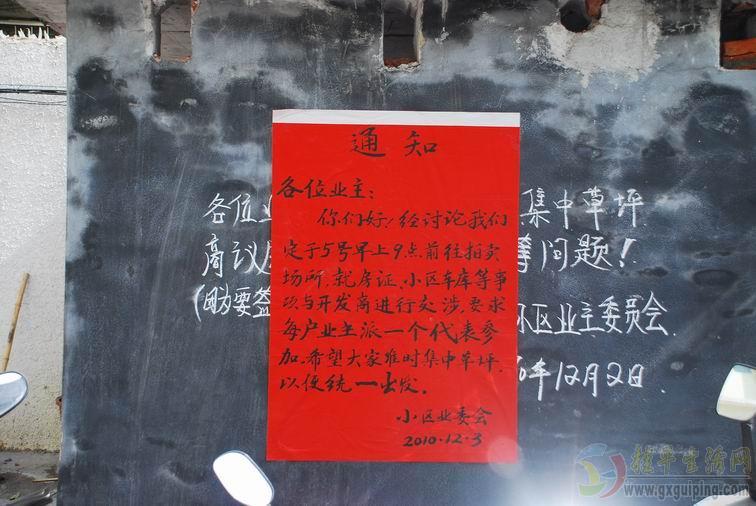 通知
各位业主:
你们好!经讨论我们
定于5号早上9点前往拍卖
场所,就房证、小区车库等事
项与开发商进行交涉,要求
每户业主派一个代表参
加.希望大家准时集中草坪,
以便统一出发.
小区业委会
2010.12.3
各位业
集中草坪
商议
等问题!
(因为要签
区业主委员会
年12月2日
桂平生活网
www.gxguiping.com